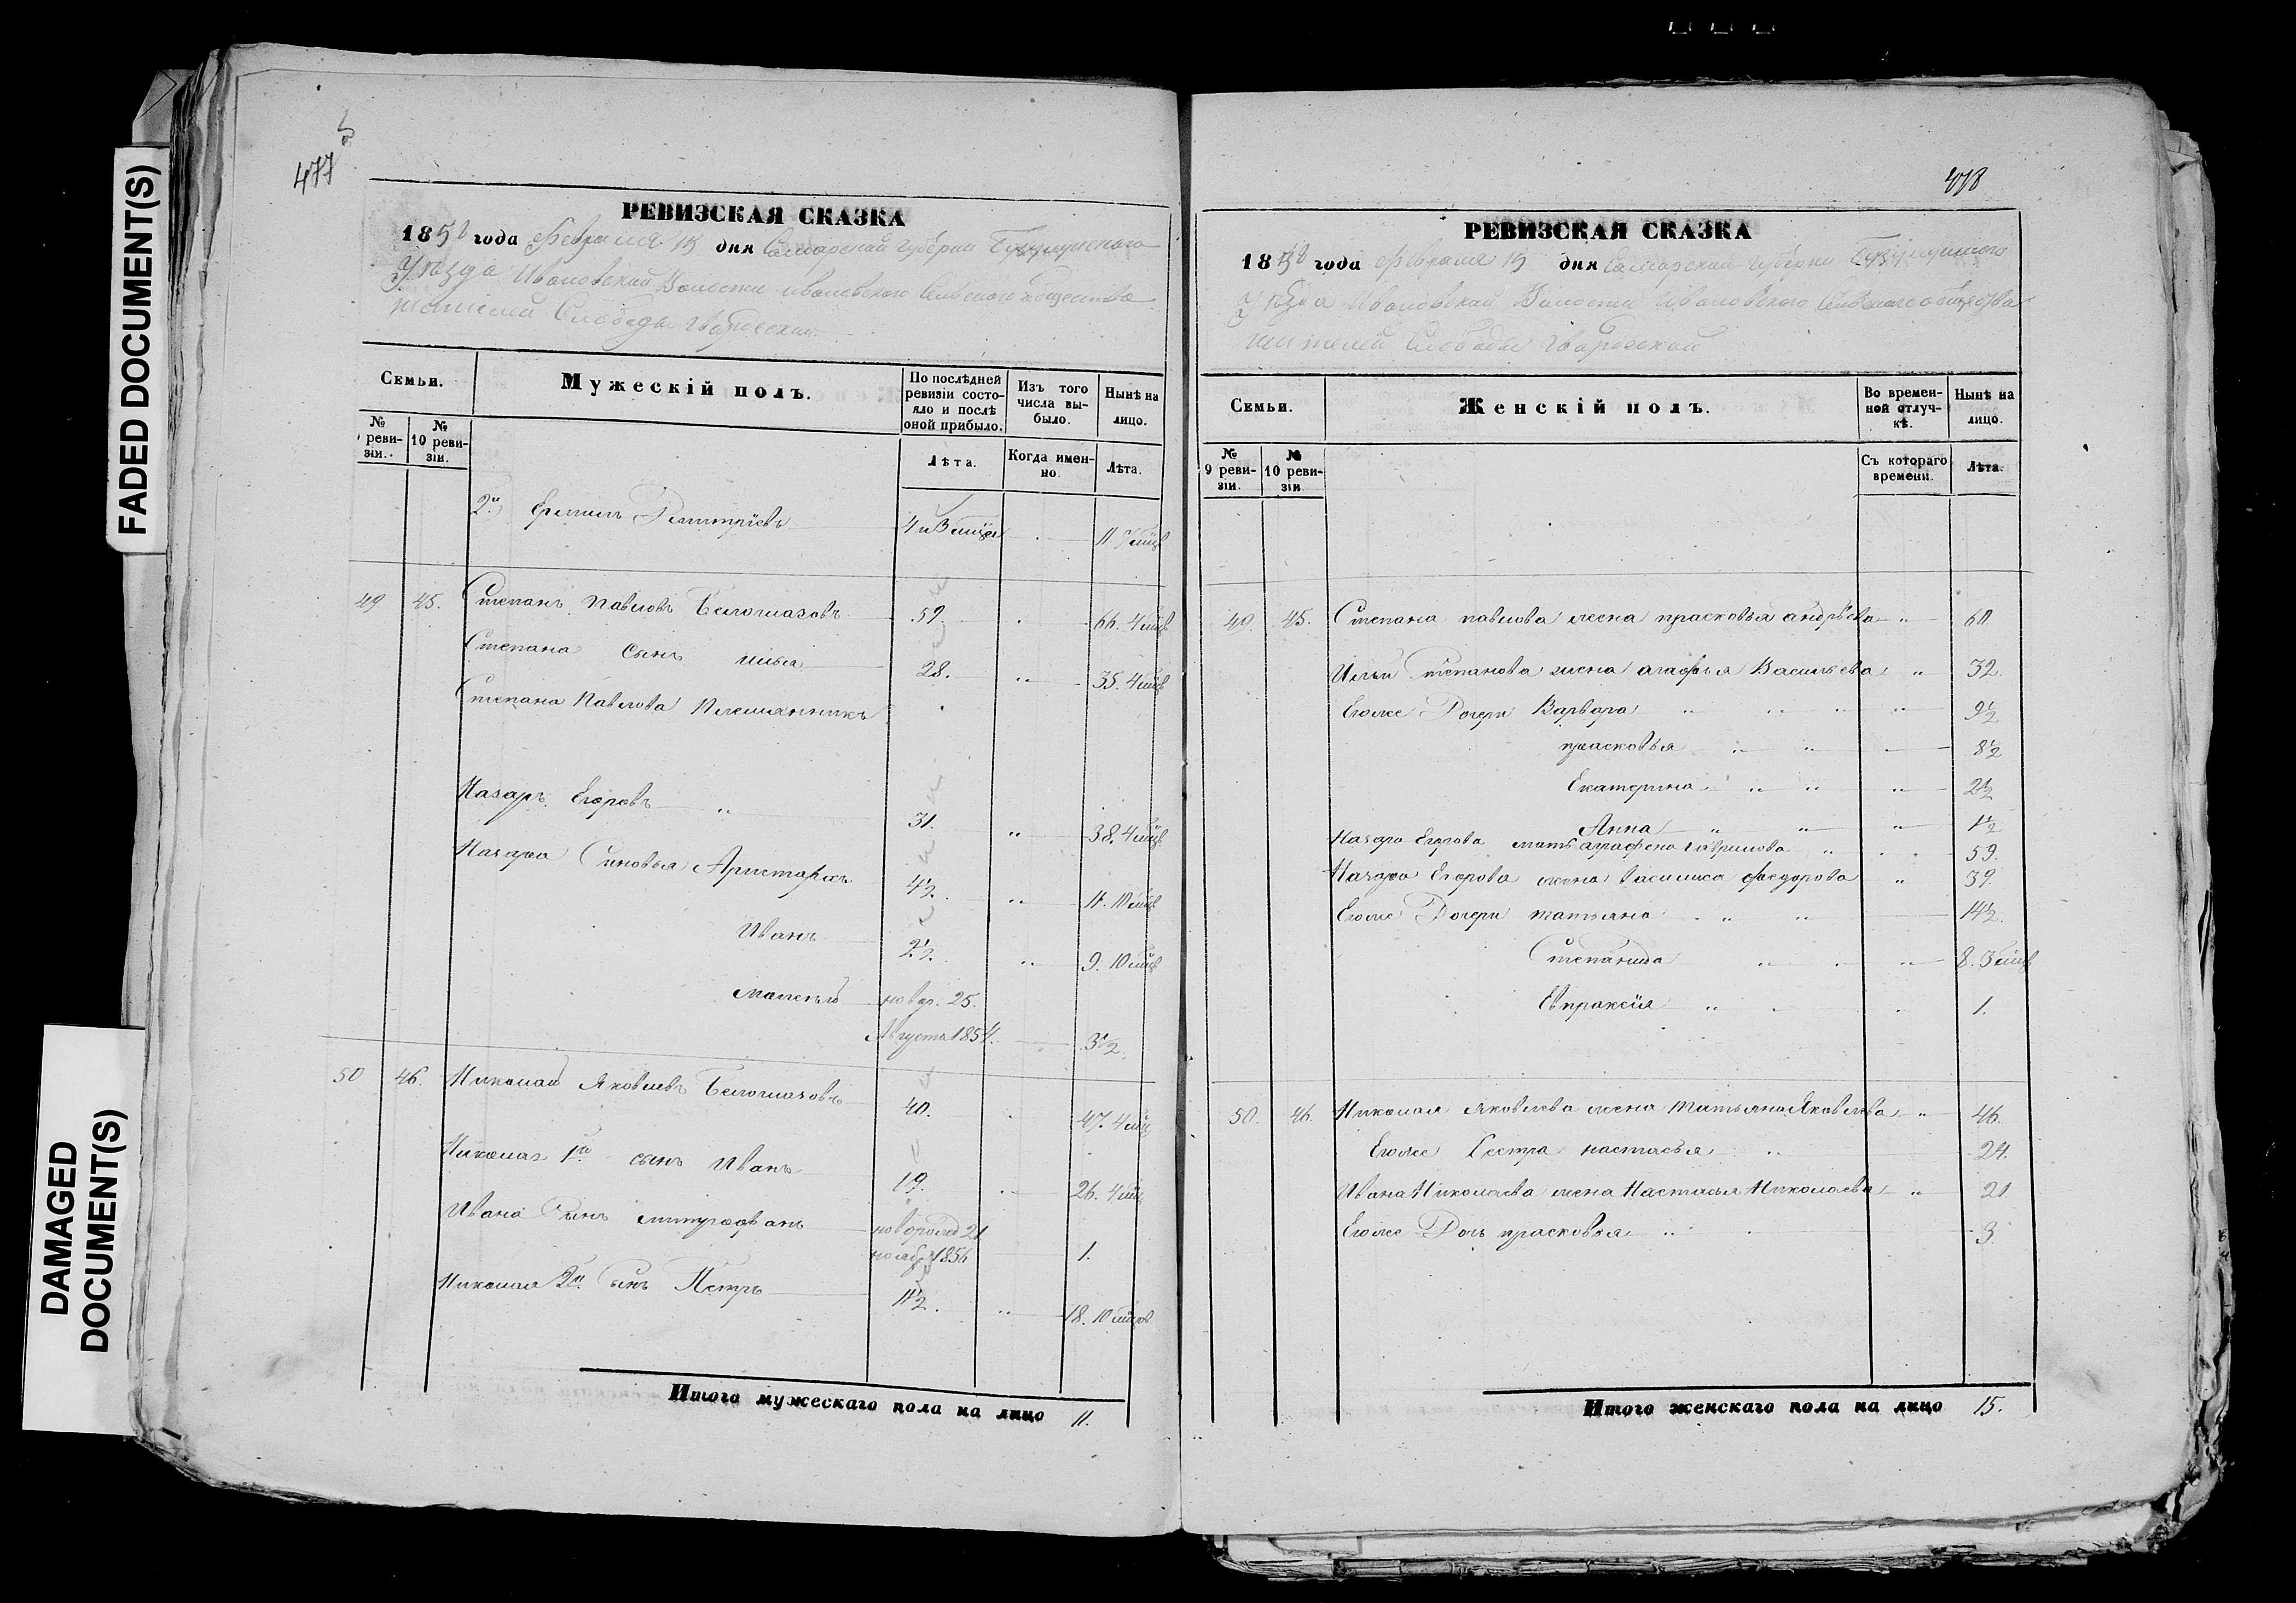 FADED DOCUMENT(S)
DAMAGED
DOCUMENT(S)
477
РЕВИЗСКАЯ СКАЗКА
1858 года Февраля 15 дня Самарской губернии Бузулукского
Уезда Ивановской Волости Ивановского Сельского общества
жителей Слободы
Семьи.
Мужескій полъ.
По послѣдней ревизіи состояло и послѣ оной прибыло.
Изъ того числа выбыло.
Нынѣ на лицо.
№ ревизіи.
№ 10 ревизіи.
Лѣта.
Когда именно.
Лѣта.
2й Дмитріевъ 4
49 45. Степанъ Павловъ Белоглазовъ 59. 66. 4 мцв
Степана сынъ Илья 28. 35. 4 мцв
Степана Павлова Племянникъ
Назаръ Егоровъ 31. 38. 4 мцв
Назара Сыновья Аристархъ 4½. 11. 10 мцв
Иванъ 2½. 9. 10 мцв
новор. 25.
Августа 1854. 3½.
50 46. Николай Яковлевъ Белоглазовъ 40. 47. 4 мц
Николая 1й сынъ Иванъ 19. 26. 4 мц
Ивана Сынъ Митрофанъ новорожд 21
ноября 1856 1.
Николая 2й Сынъ Петръ 11½. 18. 10 мцов
Итого мужескаго пола на лицо 11.
478
РЕВИЗСКАЯ СКАЗКА
1858 года Февраля 15 дня Самарской губернии Бузулукского
Уезда Ивановской Волости Ивановского Сельского общества
жителей Слободы
Семьи.
Женскій полъ.
Во временной отлучкѣ.
Нынѣ на лицо.
№ 9 ревизіи.
№ 10 ревизіи.
Съ котораго времени.
Лѣта.
49. 45. Степана павлова жена прасковья андрѣева 60
Ильи Степанова жена агафья Васильева 32.
Егоже Дочери Варвара 9½
прасковья 8½
Екатерина 2½
Анна 1½
Назара Егорова мать аграфена Гаврилова 59.
Назара Егорова жена василиса федорова 39.
Егоже Дочери татьяна 14½.
Степанида 8.
Евпраксія 1.
50. 46. Николая Яковлева жена Татьяна Яковлева 46.
Егоже Сестра настасья 24.
Ивана Николаева жена Настасья Николаева 21
Егоже Дочь прасковья 3
Итого женскаго пола на лицо 15.